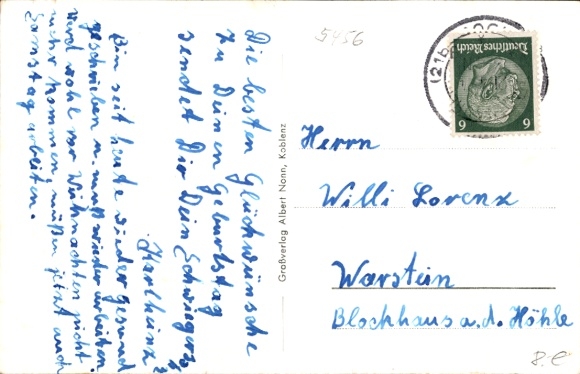 Die besten Glückwünsche
zu Deinen Geburtstag
sendet Dir Dein Schwiegers.
Karlheinz
Bin seit heute wieder gesund
geschrieben u. muß wieder arbeiten.
werd wohl vor Weihnachten nicht
mehr kommen, müßen jetzt auch
Samstag arbeiten.
Großverlag Albert Nonn, Koblenz
5456
(21b)
Deutsches Reich
6 6
Herrn
Willi Lorenz
Warstein
Blockhaus a. d. Höhle